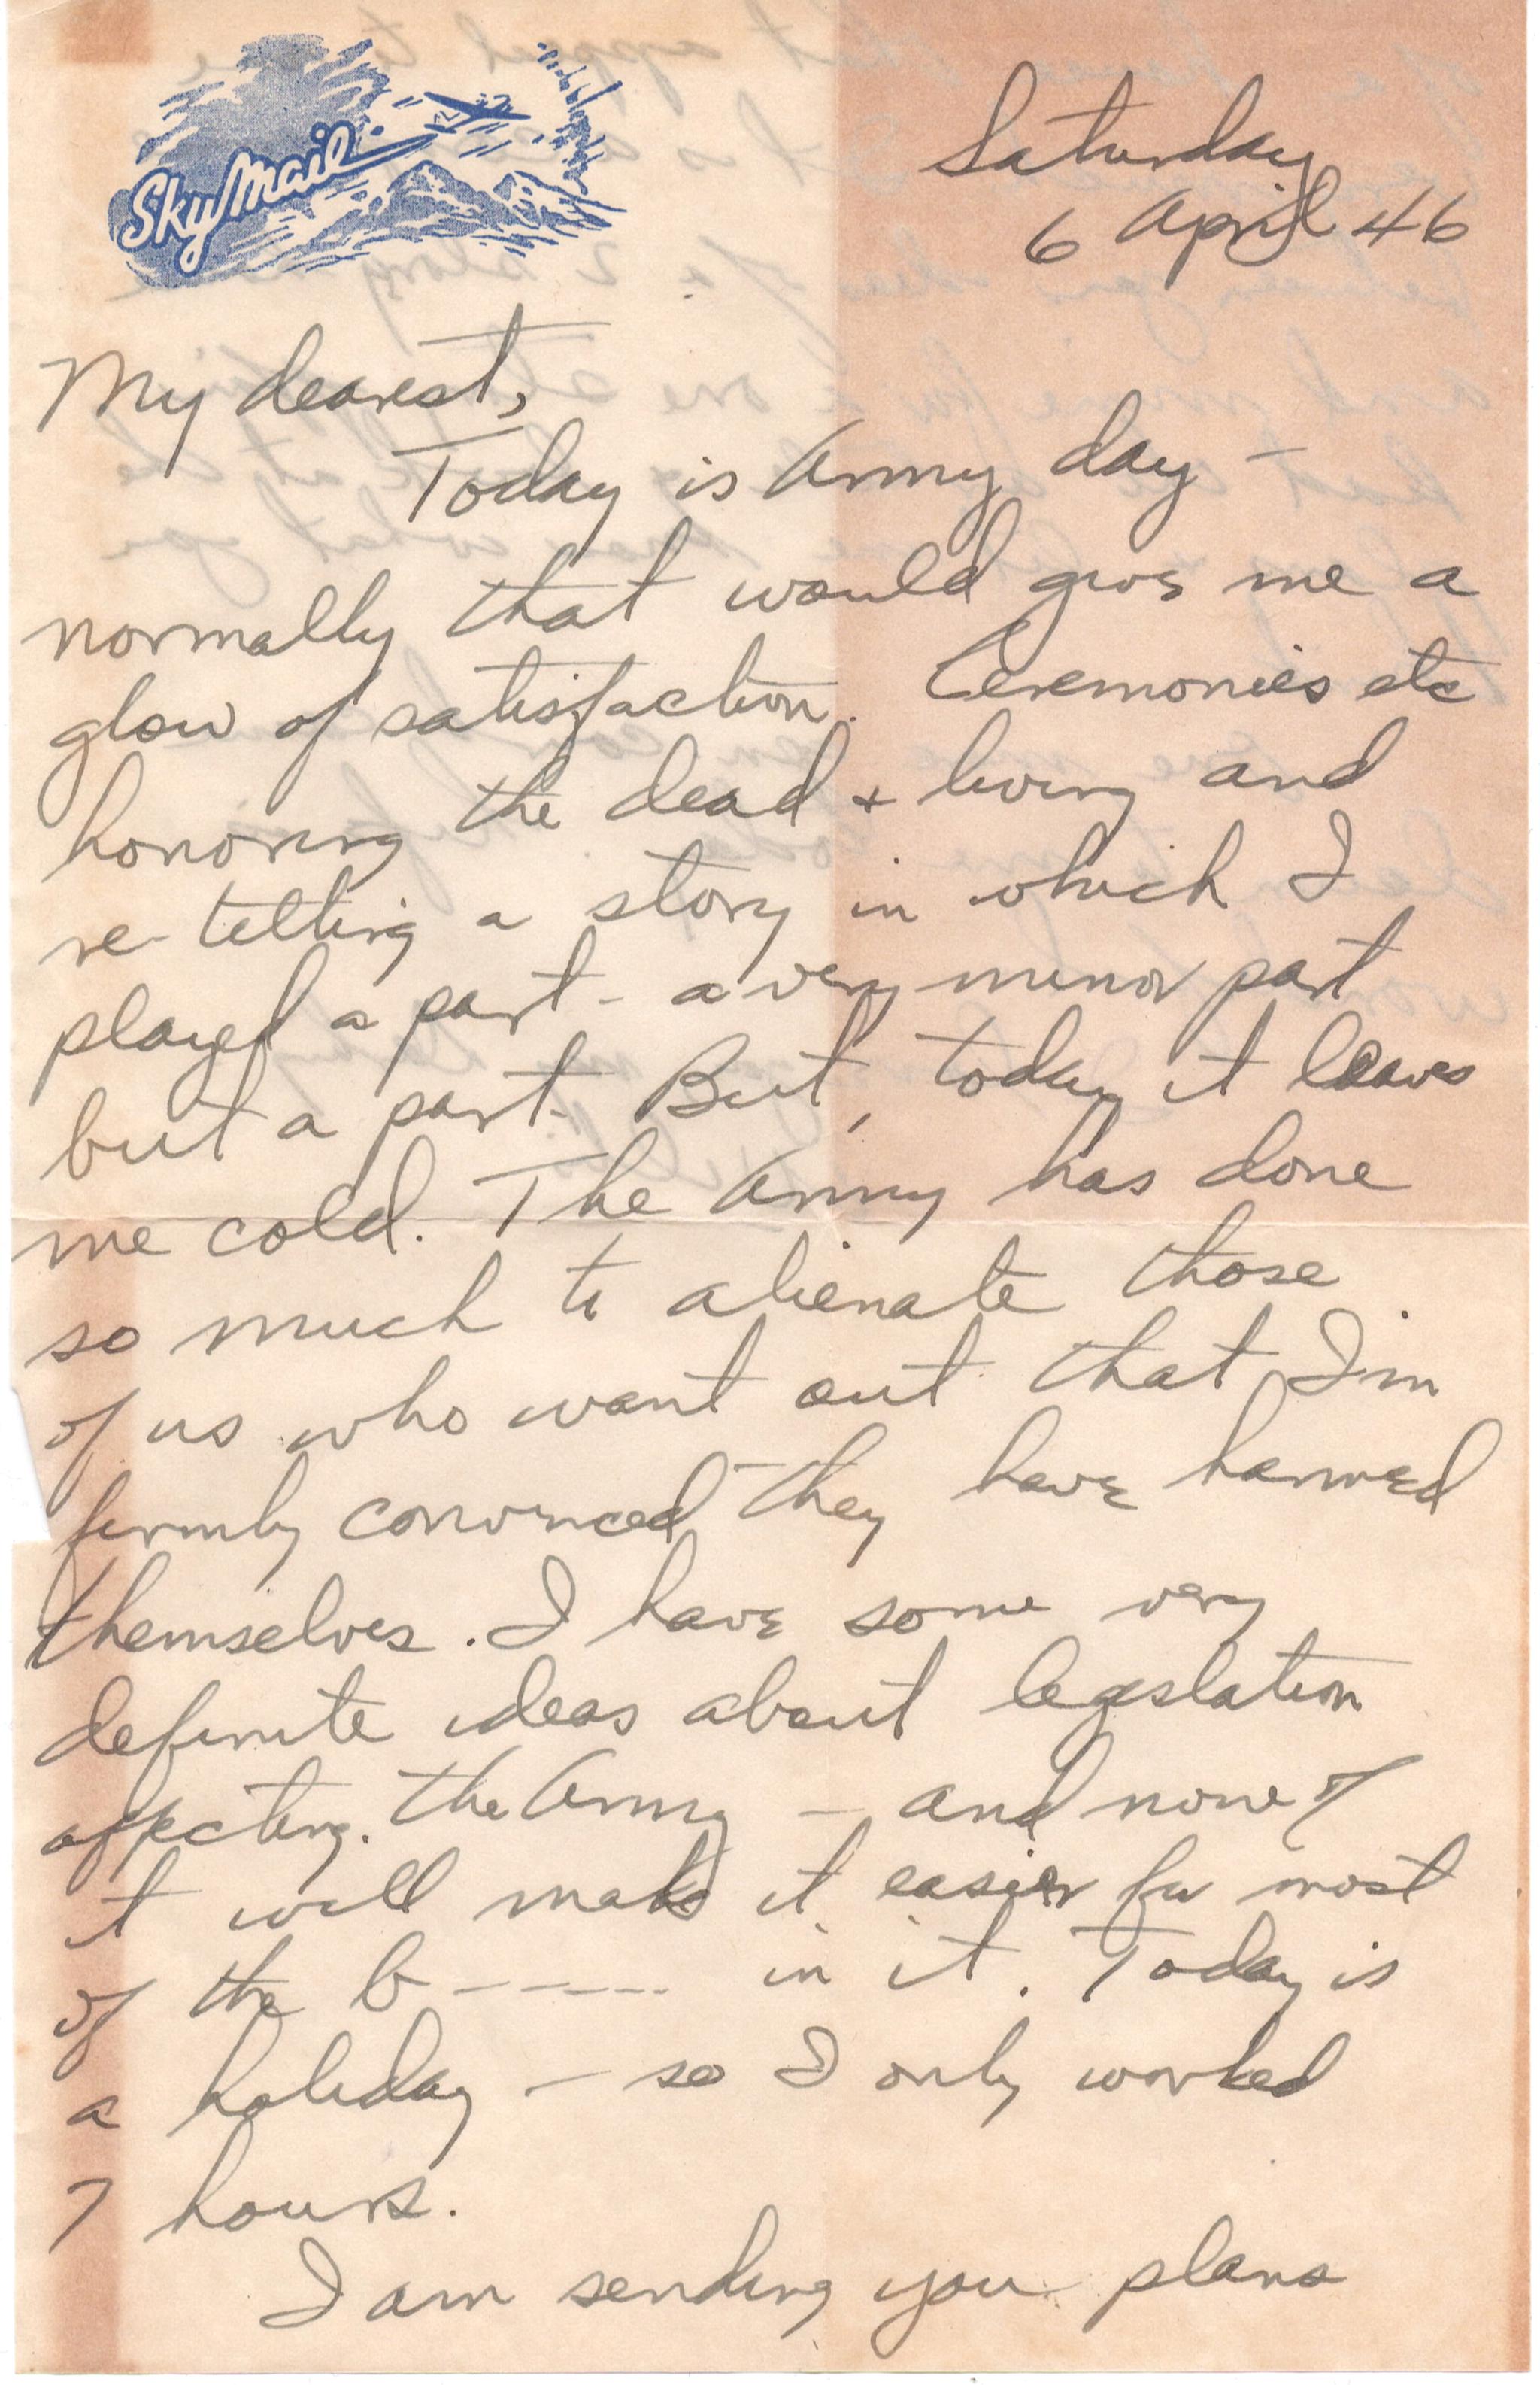 SkyMail
Saturday
6 April 46
My dearest,
Today is Army day -
normally that would give me a
glow of satisfaction. Ceremonies etc
honoring the dead + living and
re-telling a story in which I
played a part - a very minor part
but a part. But, today it leaves
me cold. The Army has done
so much to alienate those
of us who want out that I'm
firmly convinced they have harmed
themselves. I have some very
definite ideas about legislation
affecting the Army - and none of
it will make it easier for most
of the b----- in it. Today is
a holiday - so I only worked
7 hours.
I am sending you plans